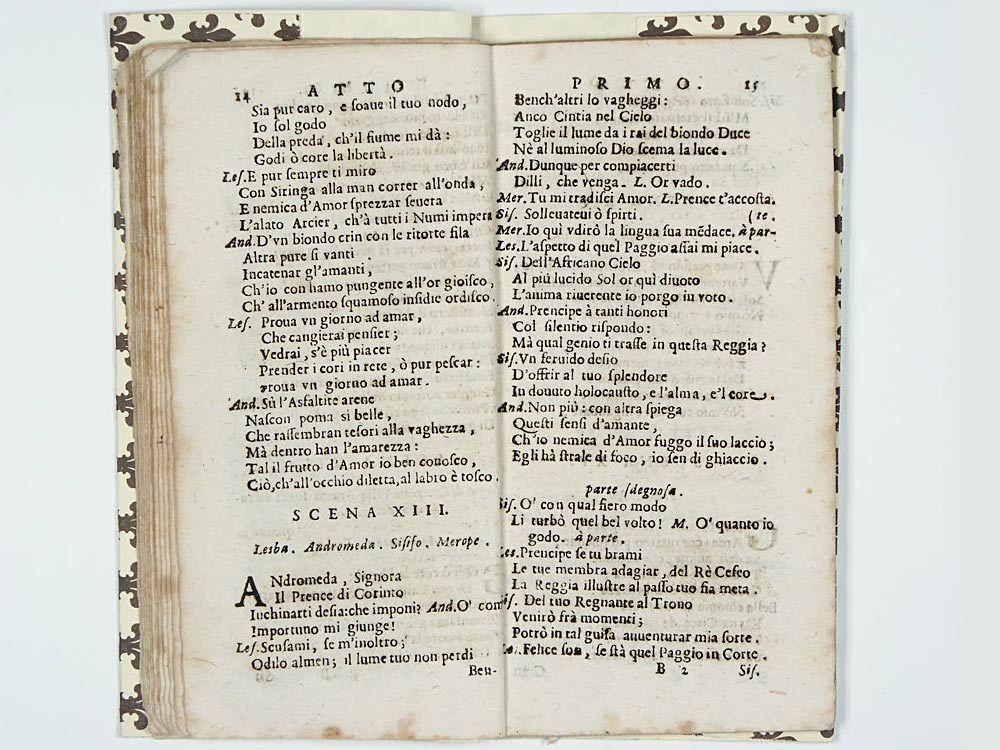 14 ATTO
Sia pur caro, e soaue il tuo nodo,
Io sol godo
Della preda, ch'il fiume mi dà:
Godi ò core la libertà.
Les. E pur sempre ti miro
Con Siringa alla man correr all'onda,
E nemica d'Amor sprezzar seuera
L'alato Arcier, ch'à tutti i Numi impera
And. D'vn biondo crin con le ritorte fila
Altra pure si vanti.
Incatenar gl'amanti,
Ch'io con hamo pungente all'or gioisco,
Ch'all'armento squamoso insidie ordisco.
Les. Proua vn giorno ad amar,
Che cangierai pensier;
Vedrai, s'è più piacer
Prender i cori in rete, ò pur pescar:
Proua vn giorno ad amar.
And. Sù l'Asfaltite arene
Nascon poma si belle,
Che rassembran tesori alla vaghezza,
Mà dentro han l'amarezza:
Tal il frutto d'Amor io ben conosco,
Ciò, ch'all'occhio diletta, al labro è tosco.
SCENA XIII.
Lesba. Andromeda. Sisifo. Merope.
ANdromeda, Signora
Il Prence di Corinto
Inchinarti desia: che imponi? And. O' com
Importuno mi giunge!
Les. Scusami, se m'inoltro;
Odilo almen; il lume tuo non perdi
Ben-
PRIMO. 15
Bench'altri lo vagheggi:
Anco Cintia nel Cielo
Toglie il lume da i rai del biondo Duce
Nè al luminoso Dio scema la luce.
And. Dunque per compiacerti
Dilli, che venga. L. Or vado.
Mer. Tu mi tradisci Amor. L. Prence t'accosta.
Sis. Solleuateui ò spirti. (te.
Mer. Io qui vdirò la lingua sua mẽdace. à par-
Les. L'aspetto di quel Paggio assai mi piace.
Sis. Dell'Africano Cielo
Al più lucido Sol or quì diuoto
L'anima riuerente io porgo in voto.
And. Prencipe à tanti honori
Col silentio rispondo:
Mà qual genio ti trasse in questa Reggia?
Sis. Vn feruido desio
D'offrir al tuo splendore
In douuto holocausto, e l'alma, e'l core.
And. Non più: con altra spiega
Questi sensi d'amante,
Ch'io nemica d'Amor fuggo il suo laccio;
Egli hà strale di foco, io sen di ghiaccio.
parte sdegnosa.
Sis. O' con qual fiero modo
Li turbò quel bel volto! M. O' quanto io
godo. à parte.
Les. Prencipe se tu brami
Le tue membra adagiar, del Rè Cefeo
La Reggia illustre al passo tuo fia meta.
Sis. Del tuo Regnante al Trono
Venirò frà momenti;
Potrò in tal guisa auuenturar mia sorte.
Les. Felice son, se stà quel Paggio in Corte.
B 2 Sis.